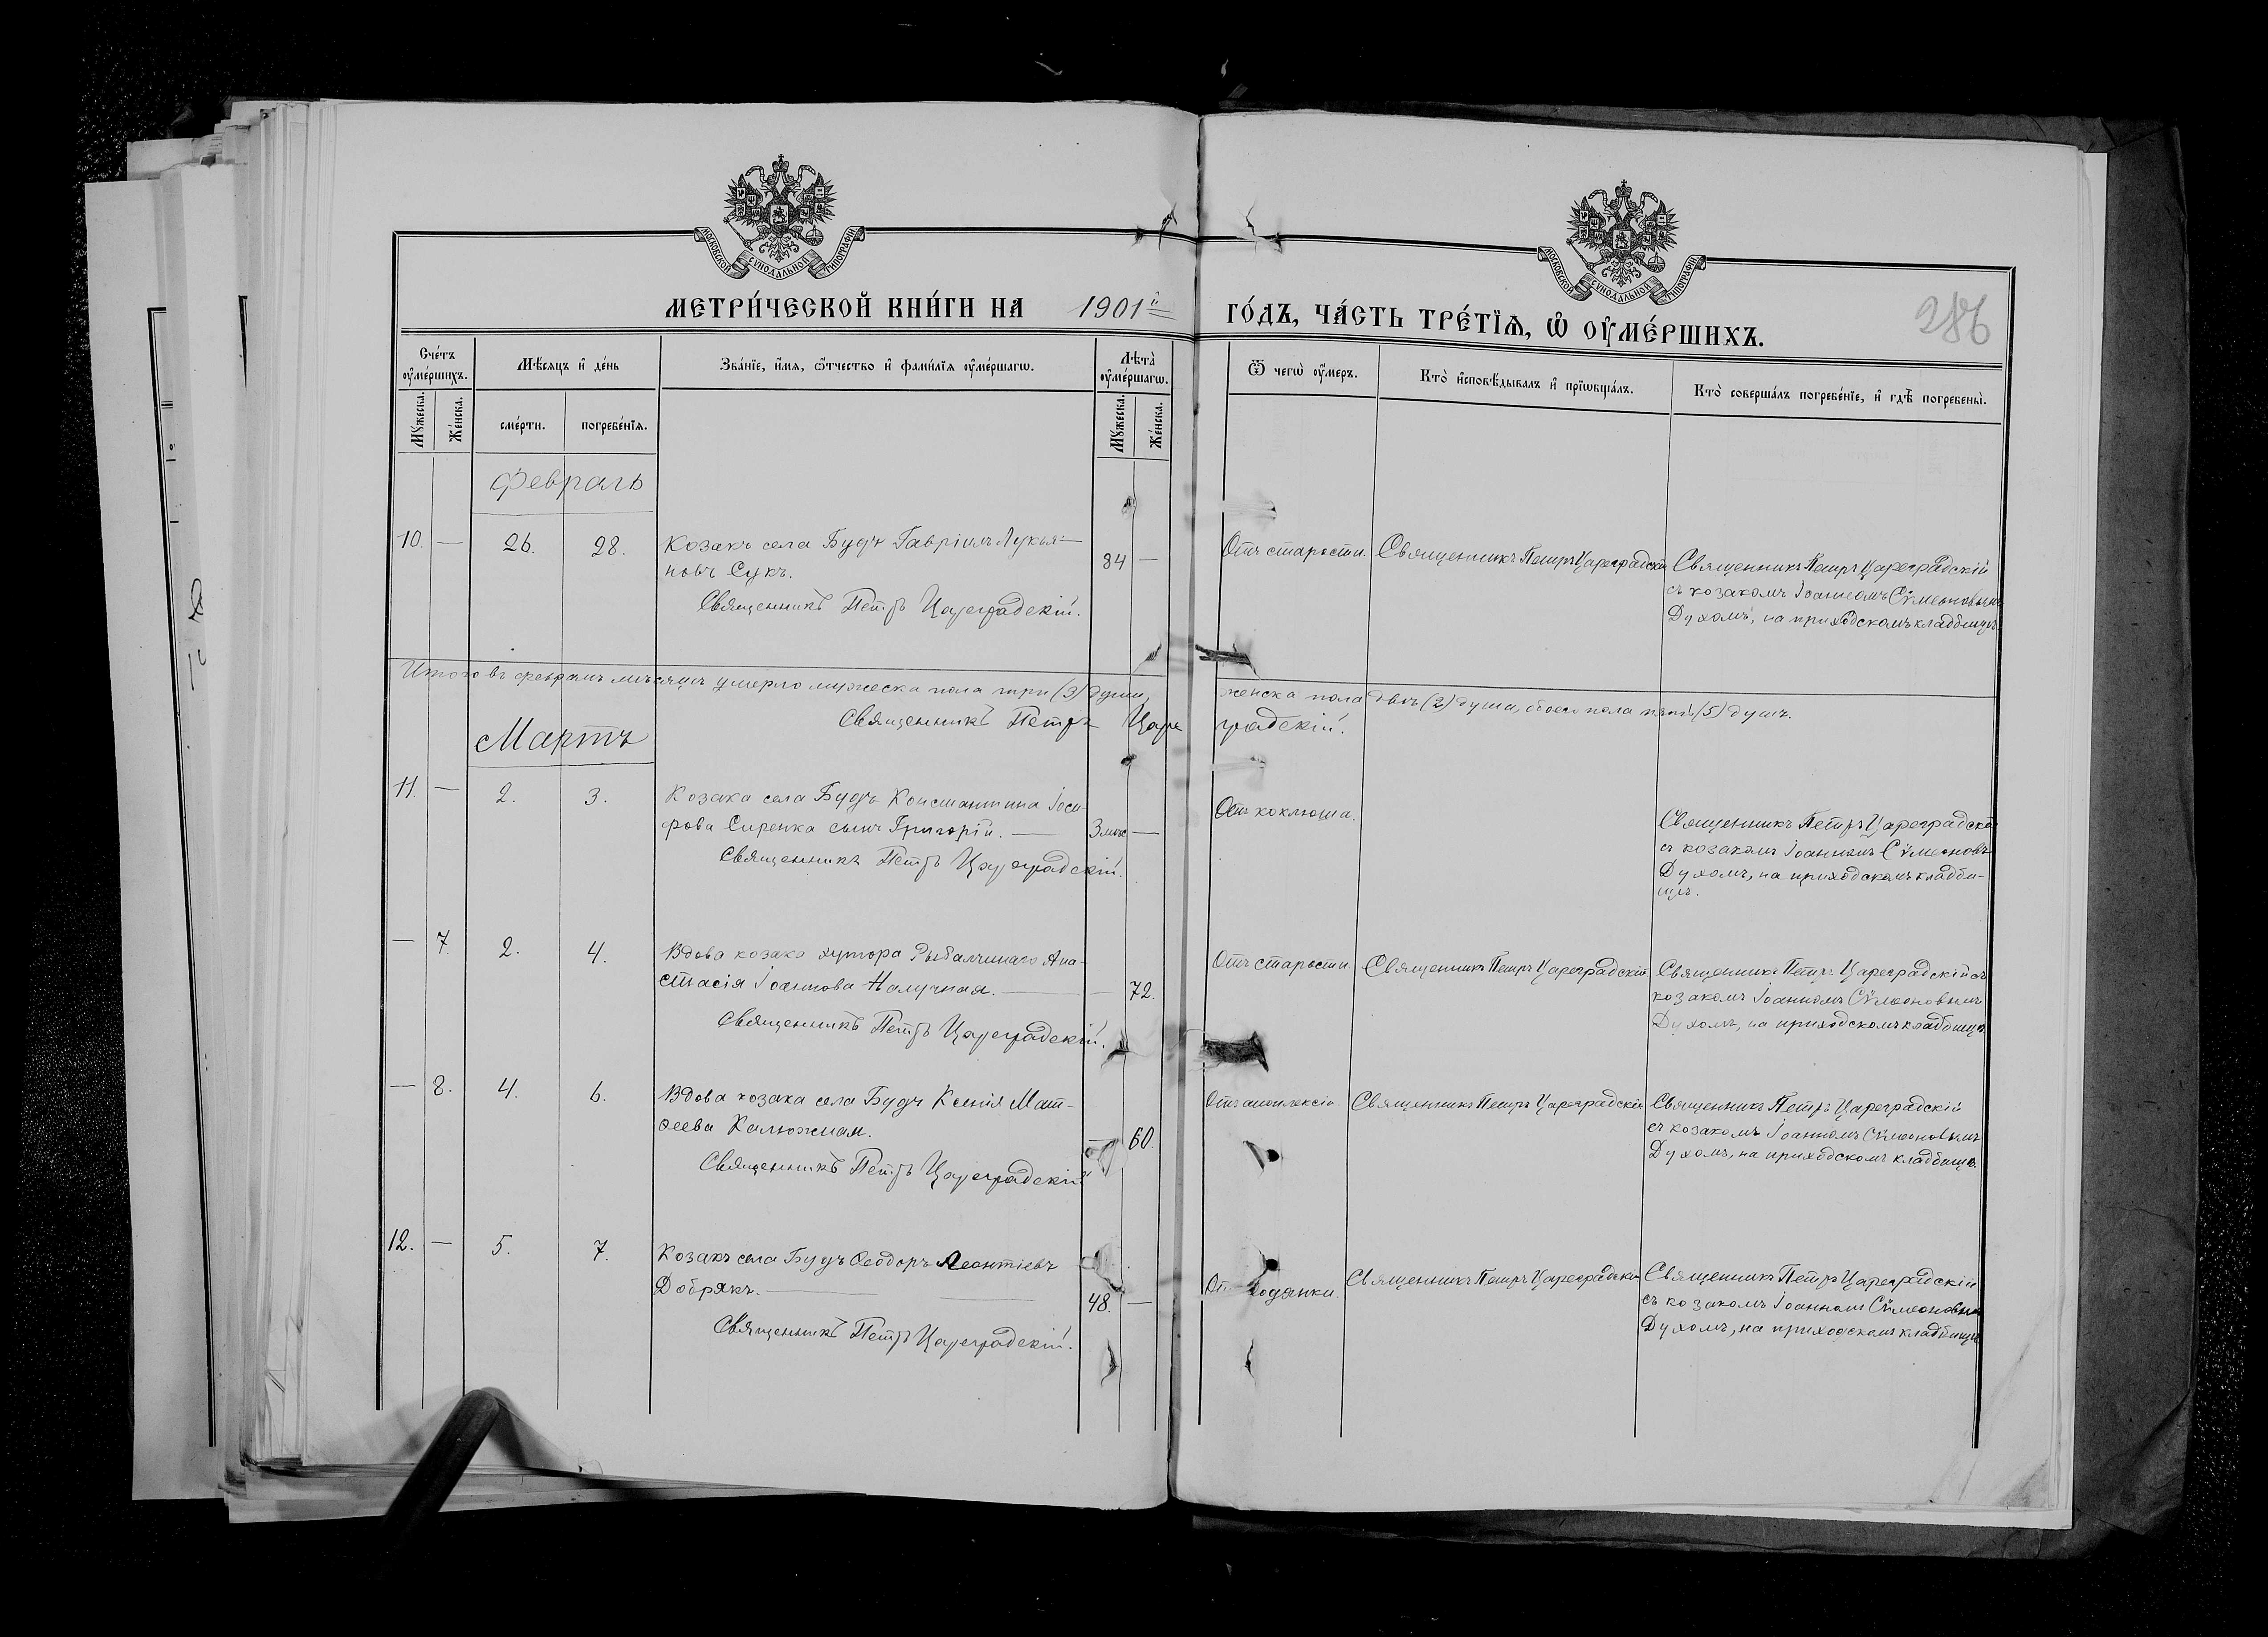 МОСКОВСКОЙ СѴНОДАЛЬНОЙ ТИПОГРАФІИ
МОСКОВСКОЙ СѴНОДАЛЬНОЙ ТИПОГРАФІИ
МЕТРИ́ЧЕСКОЙ КНИ́ГИ НА 1901й ГО́ДЪ, ЧА́СТЬ ТРЕ́ТЇѦ, Ѽ ОУ҆МЕ́РШИХЪ.
286
Сче́тъ оу҆ме́ршихъ.
Мѣ́сяцъ и҆ де́нь
Зва́нїе, и҆́мя, ѻ҆́тчество и҆ фами́лїя оу҆ме́ршагѡ.
Лѣта̀ оу҆ме́ршагѡ.
Ѿ чегѡ̀ оу҆́меръ.
Кто̀ и҆сповѣ́дывалъ и҆ прїѡбща́лъ.
Кто̀ соверша́лъ погребе́нїе, и҆ гдѣ̀ погребены̀.
Мꙋ́жеска. Же́нска.
сме́рти. погребе́нїя.
Мꙋ́жеска. Же́нска.
Февраль
10. — 26. 28. Козакъ села Будъ Гавріилъ Лукья-
новъ Сукъ. 84 —
Священникъ Петръ Цареградскій.
Отъ старости. Священникъ Петръ Цареградскій
Священникъ Петръ Цареградскій
съ козакомъ Іоанномъ Сѵмеоновымъ
Духомъ, на приходскомъ кладбищѣ.
Итого въ февралѣ мѣсяцѣ умерло мужеска пола три (3) души, женска пола двѣ (2) души, обоего пола пять (5) душъ.
Священникъ Петръ Цареградскій.
Мартъ
11. — 2. 3. Козака села Будъ Константина Іоси-
фова Сиренка сынъ Григорій. — 3 мѣс —
Священникъ Петръ Цареградскій.
Отъ коклюша.
Священникъ Петръ Цареградскій
съ козакомъ Іоанномъ Сѵмеоновъ
Духомъ, на приходскомъ кладби-
щѣ.
— 7. 2. 4. Вдова козака хутора Ана-
стасія Іоаннова — 72.
Священникъ Петръ Цареградскій.
Отъ старости. Священникъ Петръ Цареградскій
Священникъ Петръ Цареградскій съ
козакомъ Іоанномъ Сѵмеоновымъ
Духомъ, на приходскомъ кладбищѣ.
— 8. 4. 6. Вдова козака села Будъ Ксенія Мат-
ѳеева Калюжная. — 60.
Священникъ Петръ Цареградскій
Отъ апоплексіи Священникъ Петръ Цареградскій
Священникъ Петръ Цареградскій
съ козакомъ Іоанномъ Сѵмеоновымъ
Духомъ, на приходскомъ кладбищѣ.
12. — 5. 7. Козакъ села Будъ Ѳеодоръ Леонтіевъ
Добрякъ. 48. —
Священникъ Петръ Цареградскій.
Отъ водянки. Священникъ Петръ Цареградскій
Священникъ Петръ Цареградскій
съ козакомъ Іоанномъ Сѵмеоновымъ
Духомъ, на приходскомъ кладбищѣ